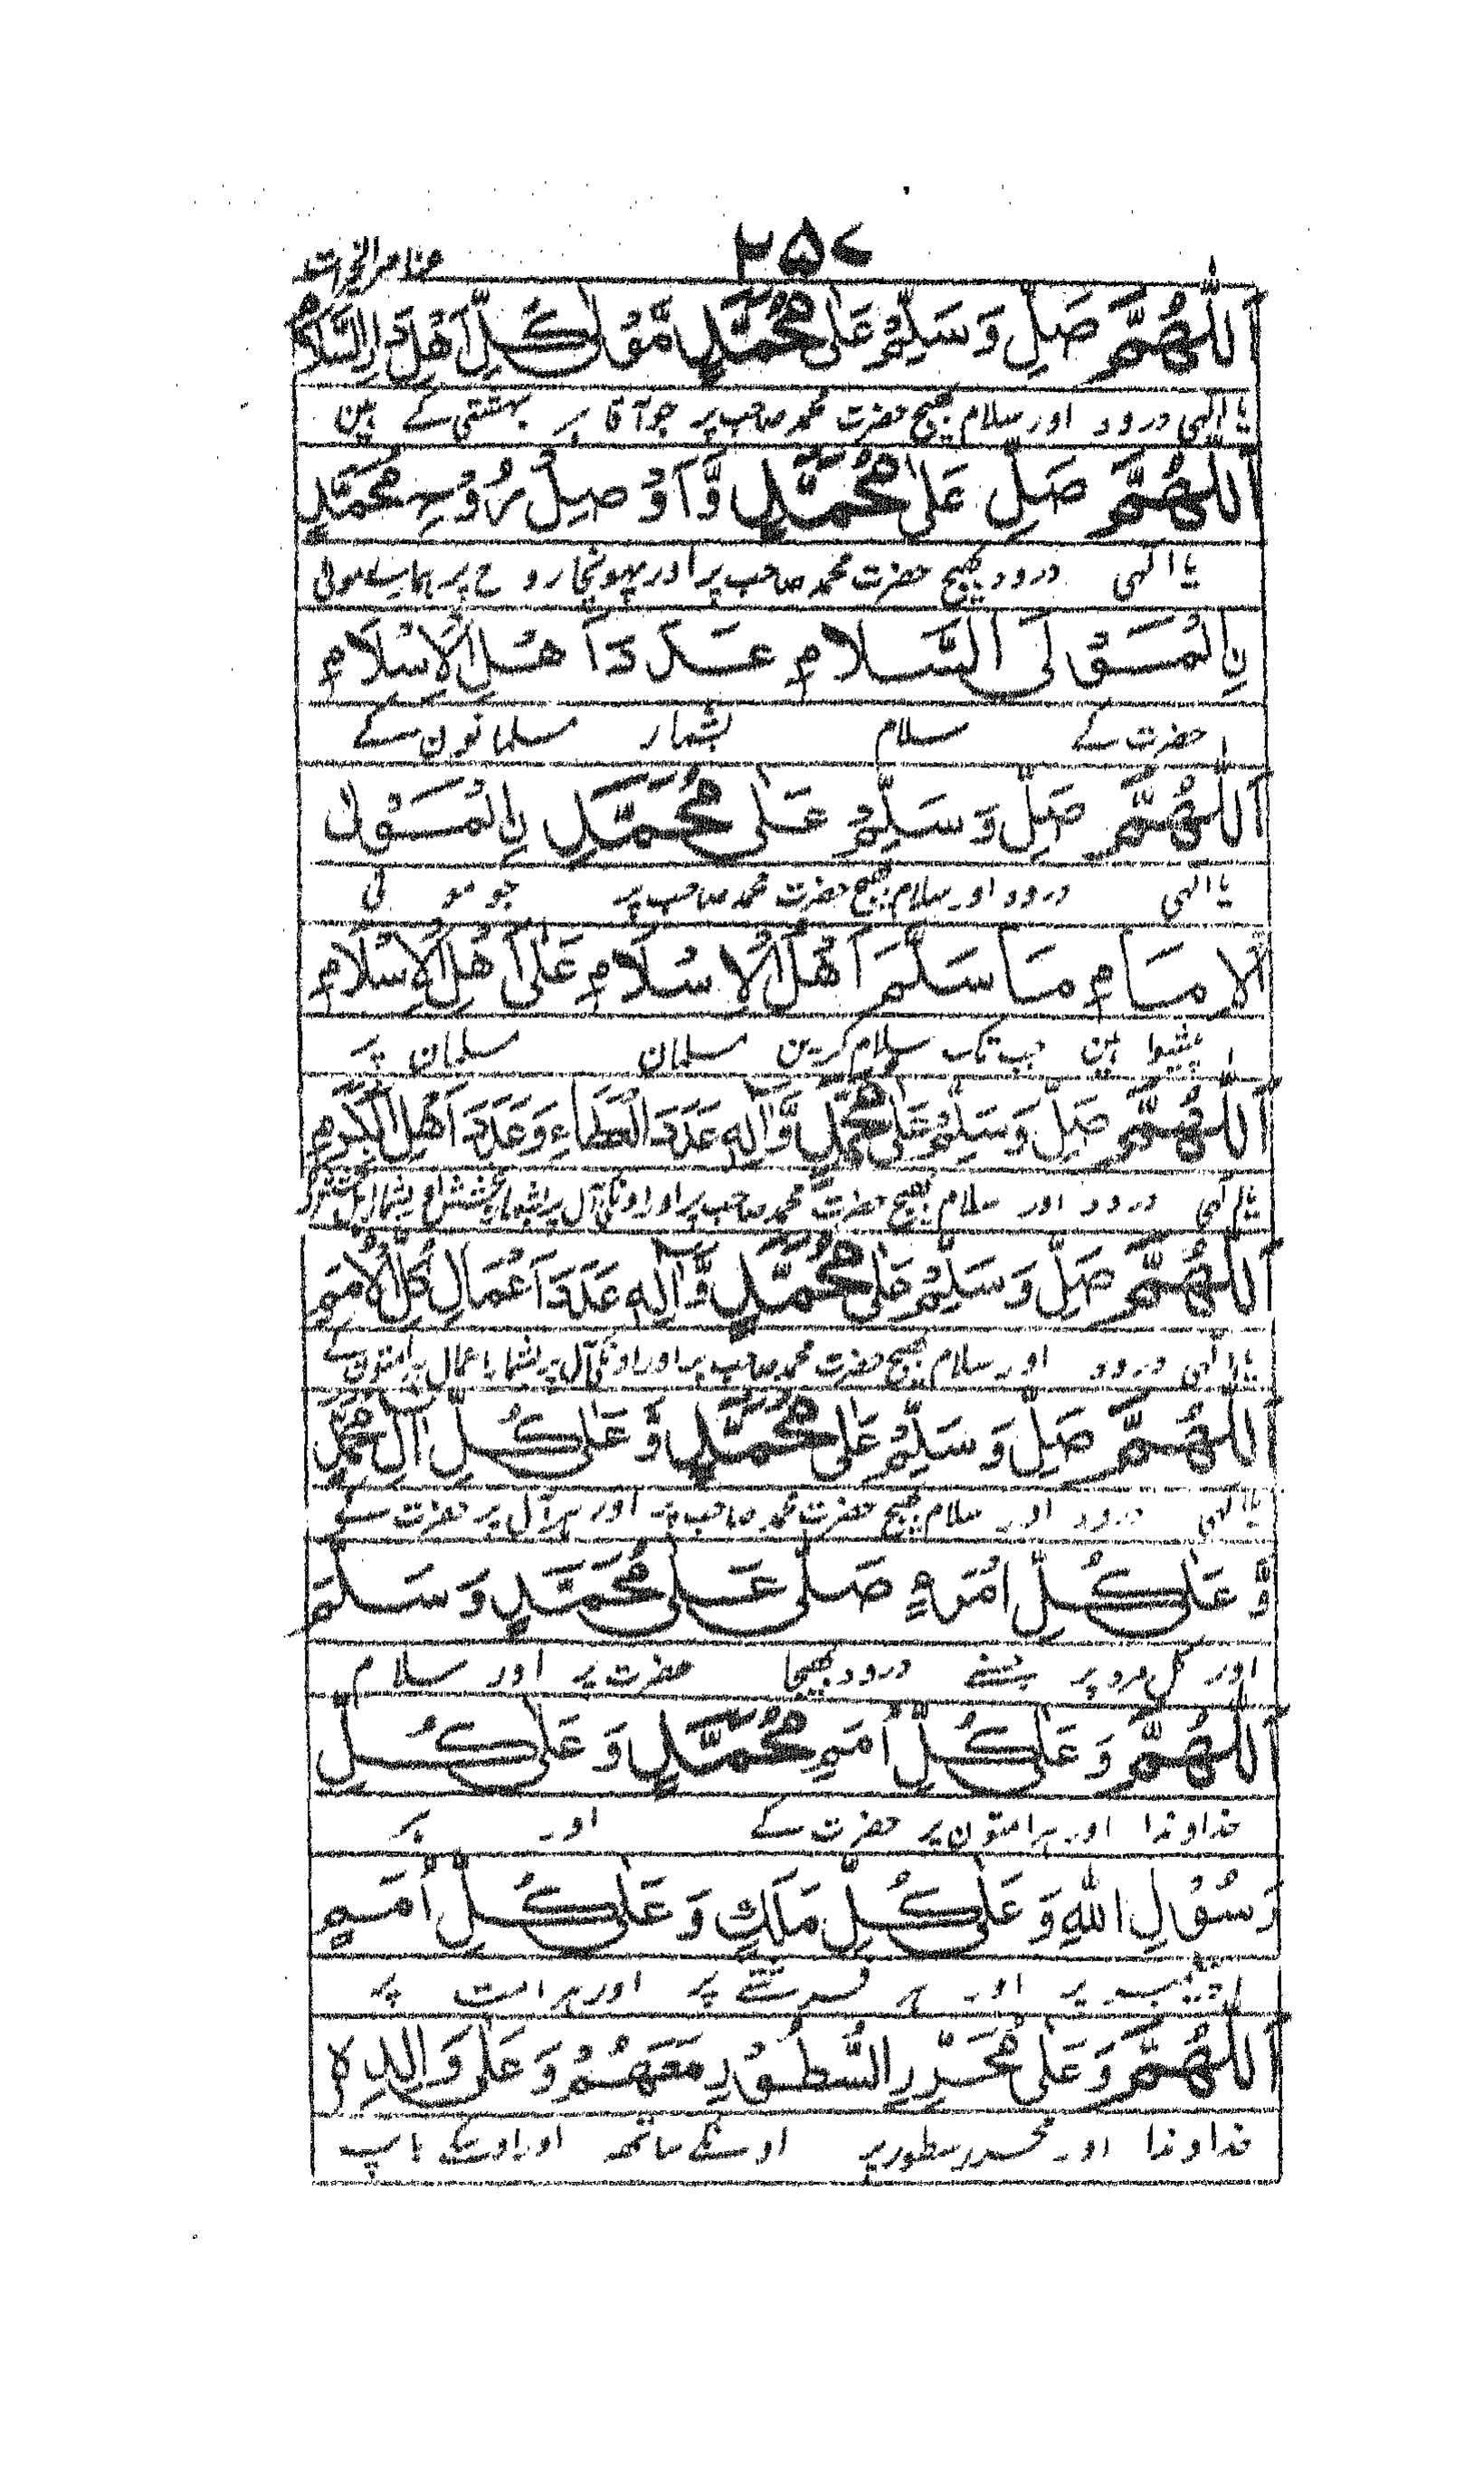 ۲۵۷
عناصر الخیرات
اَللّٰهُمَّ صَلِّ وَسَلِّمْ عَلٰى مُحَمَّدٍ مَّوْلٰى كُلِّ اَهْلِ دَارِ السَّلَامِ
یا الٰہی درود اور سلام بھیج حضرت محمد صاحب پر جو آقا ہر بہشتی کے ہین
اَللّٰهُمَّ صَلِّ عَلٰى مُحَمَّدٍ وَّاَوْصِلْ رُوْحِ مُحَمَّدٍ
یا الٰہی درود بھیج حضرت محمد صاحب پر اور پہونچا روح پر ہمارے مولٰی
نِالْمَوْلَى السَّلَامِ عَدَدَ اَهْلِ الْاِسْلَامِ
حضرت کے سلام بشمار مسلمانون کے
اَللّٰهُمَّ صَلِّ وَسَلِّمْ عَلٰى مُحَمَّدٍ نِالْمَوْلٰى
یا الٰہی درود اور سلام بھیج حضرت محمد صاحب پر جو مولٰی
اَلْاِمَامِ مَا سَلَّمَ اَهْلُ الْاِسْلَامِ عَلٰى اَهْلِ الْاِسْلَامِ
پیشوا ہین جب تک سلام کرین مسلمان مسلمان پر
اَللّٰهُمَّ صَلِّ وَسَلِّمْ عَلٰى مُحَمَّدٍ وَّاٰلِهٖ عَدَدَ الْعَطَاءِ وَعَدَدَ اَهْلِ الْكَرَمِ
یا الٰہی درود اور سلام بھیج حضرت محمد صاحب پر اور اونکی آل پر بشمار بخشش اور بشمار اہل
اَللّٰهُمَّ صَلِّ وَسَلِّمْ عَلٰى مُحَمَّدٍ وَّاٰلِهٖ عَدَدَ اَعْمَالِ كُلِّ الْاُمَمِ
یا الٰہی درود اور سلام بھیج حضرت محمد صاحب پر اور اونکی آل پر بشمار اعمال ہر امتون کے
اَللّٰهُمَّ صَلِّ وَسَلِّمْ عَلٰى مُحَمَّدٍ وَّعَلٰى كُلِّ اٰلِ مُحَمَّدٍ
یا الٰہی درود اور سلام بھیج حضرت محمد صاحب پر اور ہر آل پر حضرت کے
وَّعَلٰى كُلِّ امْرَءٍ صَلّٰى عَلٰى مُحَمَّدٍ وَسَلَّمَ
اور کل مرد پر جسنے درود بھیجا حضرت پر اور سلام
اَللّٰهُمَّ وَعَلٰى كُلِّ اُمَمِ مُحَمَّدٍ وَعَلٰى كُلِّ
خداوندا اور ہر امتون پر حضرت کے اور ہر
رَسُوْلِ اللّٰهِ وَعَلٰى كُلِّ مَلَكٍ وَعَلٰى كُلِّ اُمَمٍ
پر اور ہر فرشتے پر اور ہر امت پر
اَللّٰهُمَّ وَعَلٰى مُحَرِّرِ السُّطُوْرِ مَعَهُمْ وَعَلٰى وَالِدِهٖ
خداوندا اور محرر سطور پر اونکے ساتھ اور اوسکے باپ